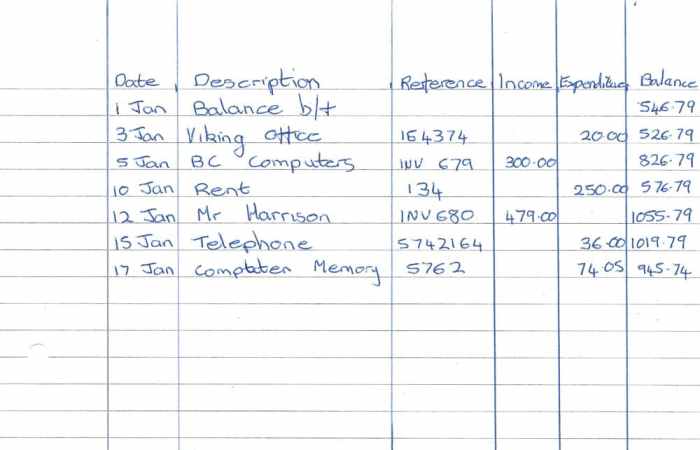 Date Description Reference Income Expenditure Balance
1 Jan Balance b/f 546.79
3 Jan Viking office 164374 20.00 526.79
5 Jan BC Computers INV 679 300.00 826.79
10 Jan Rent 134 250.00 576.79
12 Jan Mr Harrison INV 680 479.00 1055.79
15 Jan Telephone 5742164 36.00 1019.79
17 Jan Computer Memory 5762 74.05 945.74